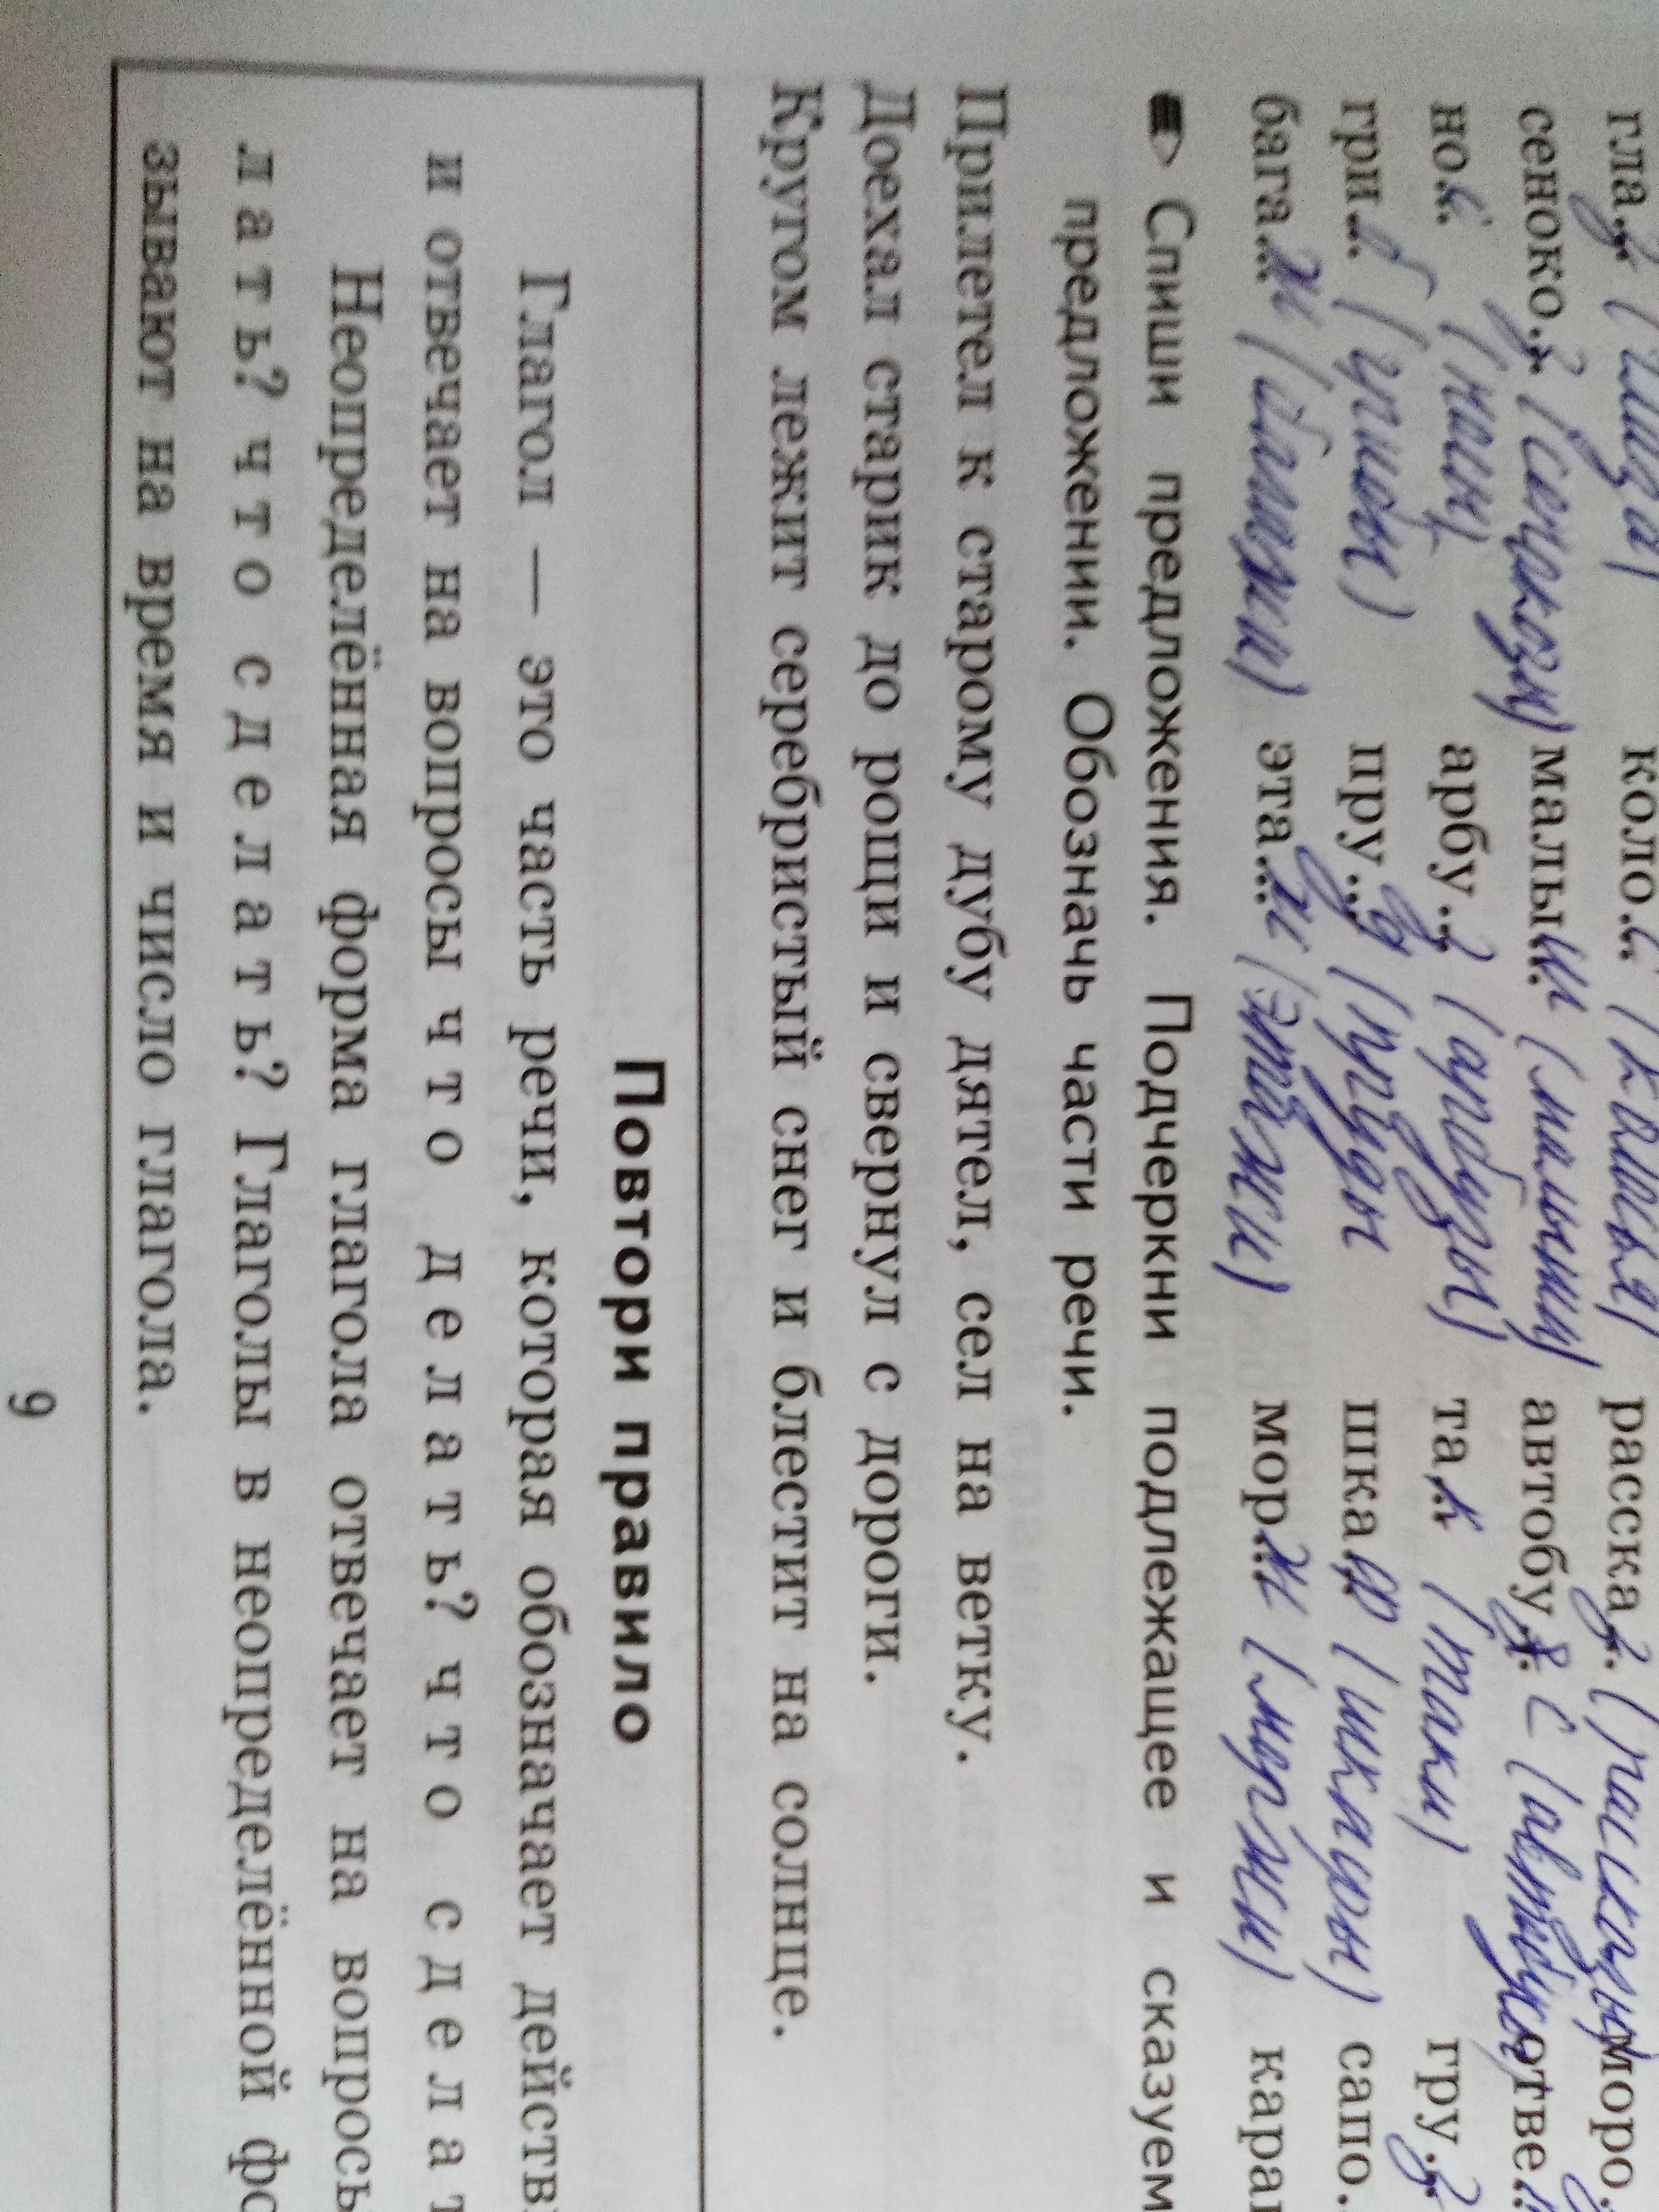 гла...з (глаза) коло...с (колосья) расска...з (рассказы) моро...
сеноко...с (сенокосы) малы...ш (малыши) автобу...с (автобусы) отве...т
но...с (носы) арбу...з (арбузы) та...к (таки) гру...з
гри...б (грибы) пру...д (пруды шка...ф (шкафы) сапо...
бага...ж (багажи) эта...ж (этажи) мор...ж (моржи) кара
Спиши предложения. Подчеркни подлежащее и сказуем
предложении. Обозначь части речи.
Прилетел к старому дубу дятел, сел на ветку.
Доехал старик до рощи и свернул с дороги.
Кругом лежит серебристый снег и блестит на солнце.
Повтори правило
Глагол — это часть речи, которая обозначает действ
и отвечает на вопросы что делать? что сделат
Неопределённая форма глагола отвечает на вопросы
лать? что сделать? Глаголы в неопределённой фо
зывают на время и число глагола.
9